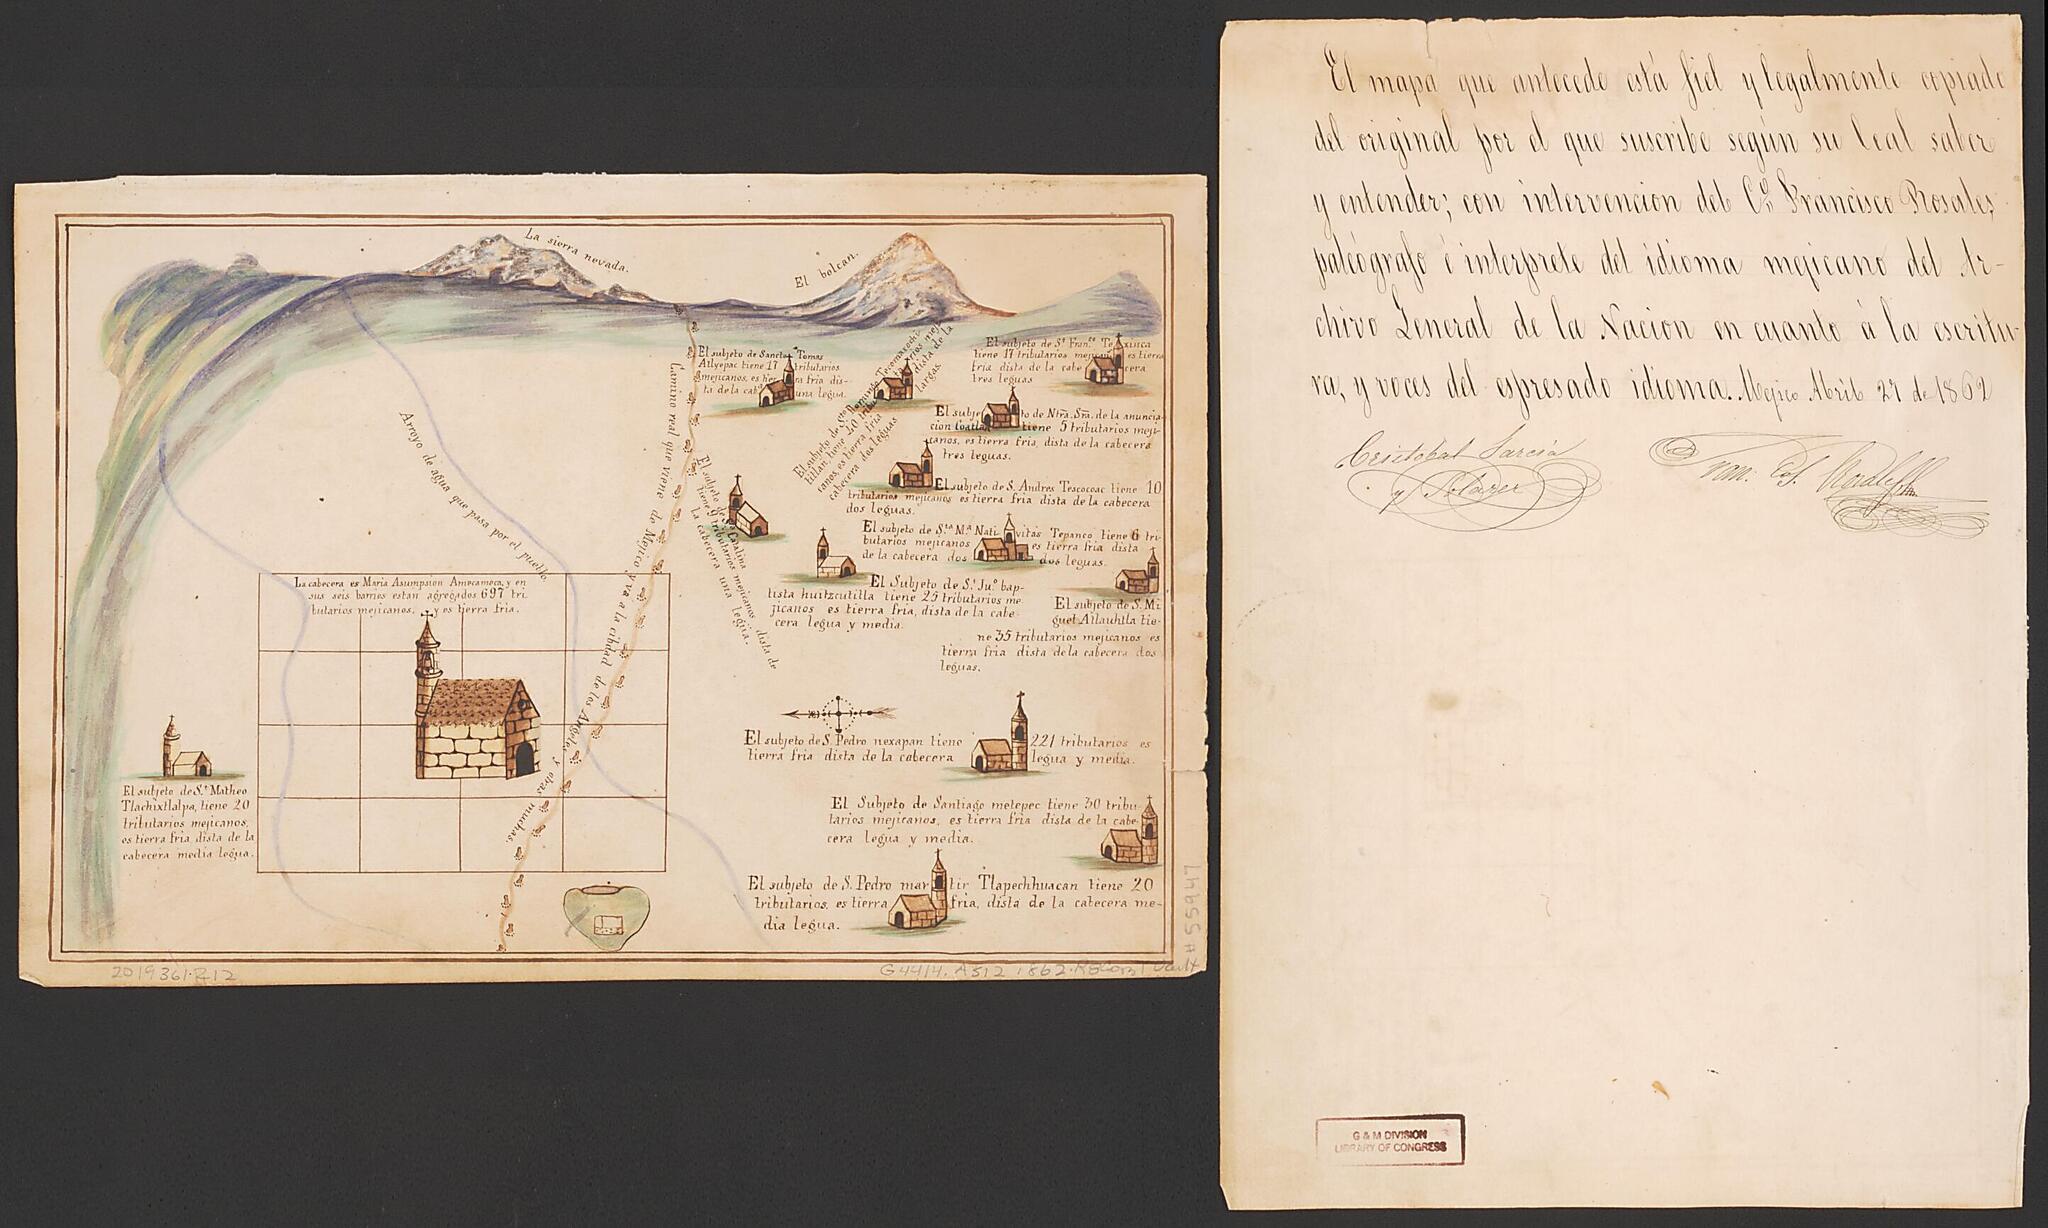 La sierra nevada.
El bolcan.
Arroyo de agua que pasa por el pueblo.
Camino real que viene de Mejico y va a la cibdad de los Angeles y otras muchas.
El subjeto de Sancto Tomas
Atlyepac tiene 17 tributarios
mejicanos, es tierra fria dis-
ta de la cabecera una legua.
El subjeto de Sto. Domingo
titlan, tiene 40
canos, es tierra fria dista de la
cabecera dos leguas largas.
El subjeto de Sn. Franco.
tiene 17 tributarios mejicanos es tierra
fria dista de la cabecera
tres leguas
El subjeto de Ntra. Sra. de la anuncia-
cion Coatlan tiene 5 tributarios meji-
canos, es tierra fria, dista de la cabecera
tres leguas.
El subjeto de S. Andres Tescocoac tiene 10
tributarios mejicanos es tierra fria dista de la cabecera
dos leguas.
El subjeto de Sta. Catalina
tiene 9 tributarios mejicanos dista de
la cabecera una legua.
El subjeto de Sta. Ma. Nativitas Tepanco tiene 6 tri-
butarios mejicanos es tierra fria dista
de la cabecera dos dos leguas.
El Subjeto de S. Juo. bap-
tista huitzcutilla tiene 25 tributarios me-
jicanos es tierra fria, dista de la cabe-
cera legua y media.
El subjeto de S. Mi
guel Atlauhtla tie-
ne 35 tributarios mejicanos es
tierra fria dista de la cabecera dos
leguas.
La cabecera es Maria Asumpsion Amecameca, y en
sus seis barrios estan agregados 697 tri
butarios mejicanos, y es tierra fria.
El subjeto de S. Pedro nexapan tiene 221 tributarios es
tierra fria dista de la cabecera legua y media.
El subjeto de S. Matheo
Tlachixtlalpa, tiene 20
tributarios mejicanos,
es tierra fria, dista de la
cabecera media legua.
El Subjeto de Santiago metepec tiene 30 tribu-
tarios mejicanos, es tierra fria dista de la cabe-
cera legua y media.
El subjeto de S. Pedro martir Tlapechhuacan tiene 20
tributarios, es tierra fria, dista de la cabecera me-
dia legua.
#559947
2019361.R12
G4414.A512 1862.R6 Vault
El mapa que antecede está fiel y legalmente copiado
del original por el que suscribe según su leal saber
y entender; con intervencion del Co. Francisco Rosales,
paleógrafo é interprete del idioma mejicano del Ar-
chivo General de la Nacion en cuanto á la escritu-
ra, y voces del espresado idioma. Mejico Abril 27 de 1862
Cristobal Garcia
y
Fran. Rosales
G & M DIVISION
LIBRARY OF CONGRESS